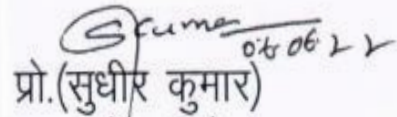 SKumar
06 06 22
प्रो.(सुधीर कुमार)